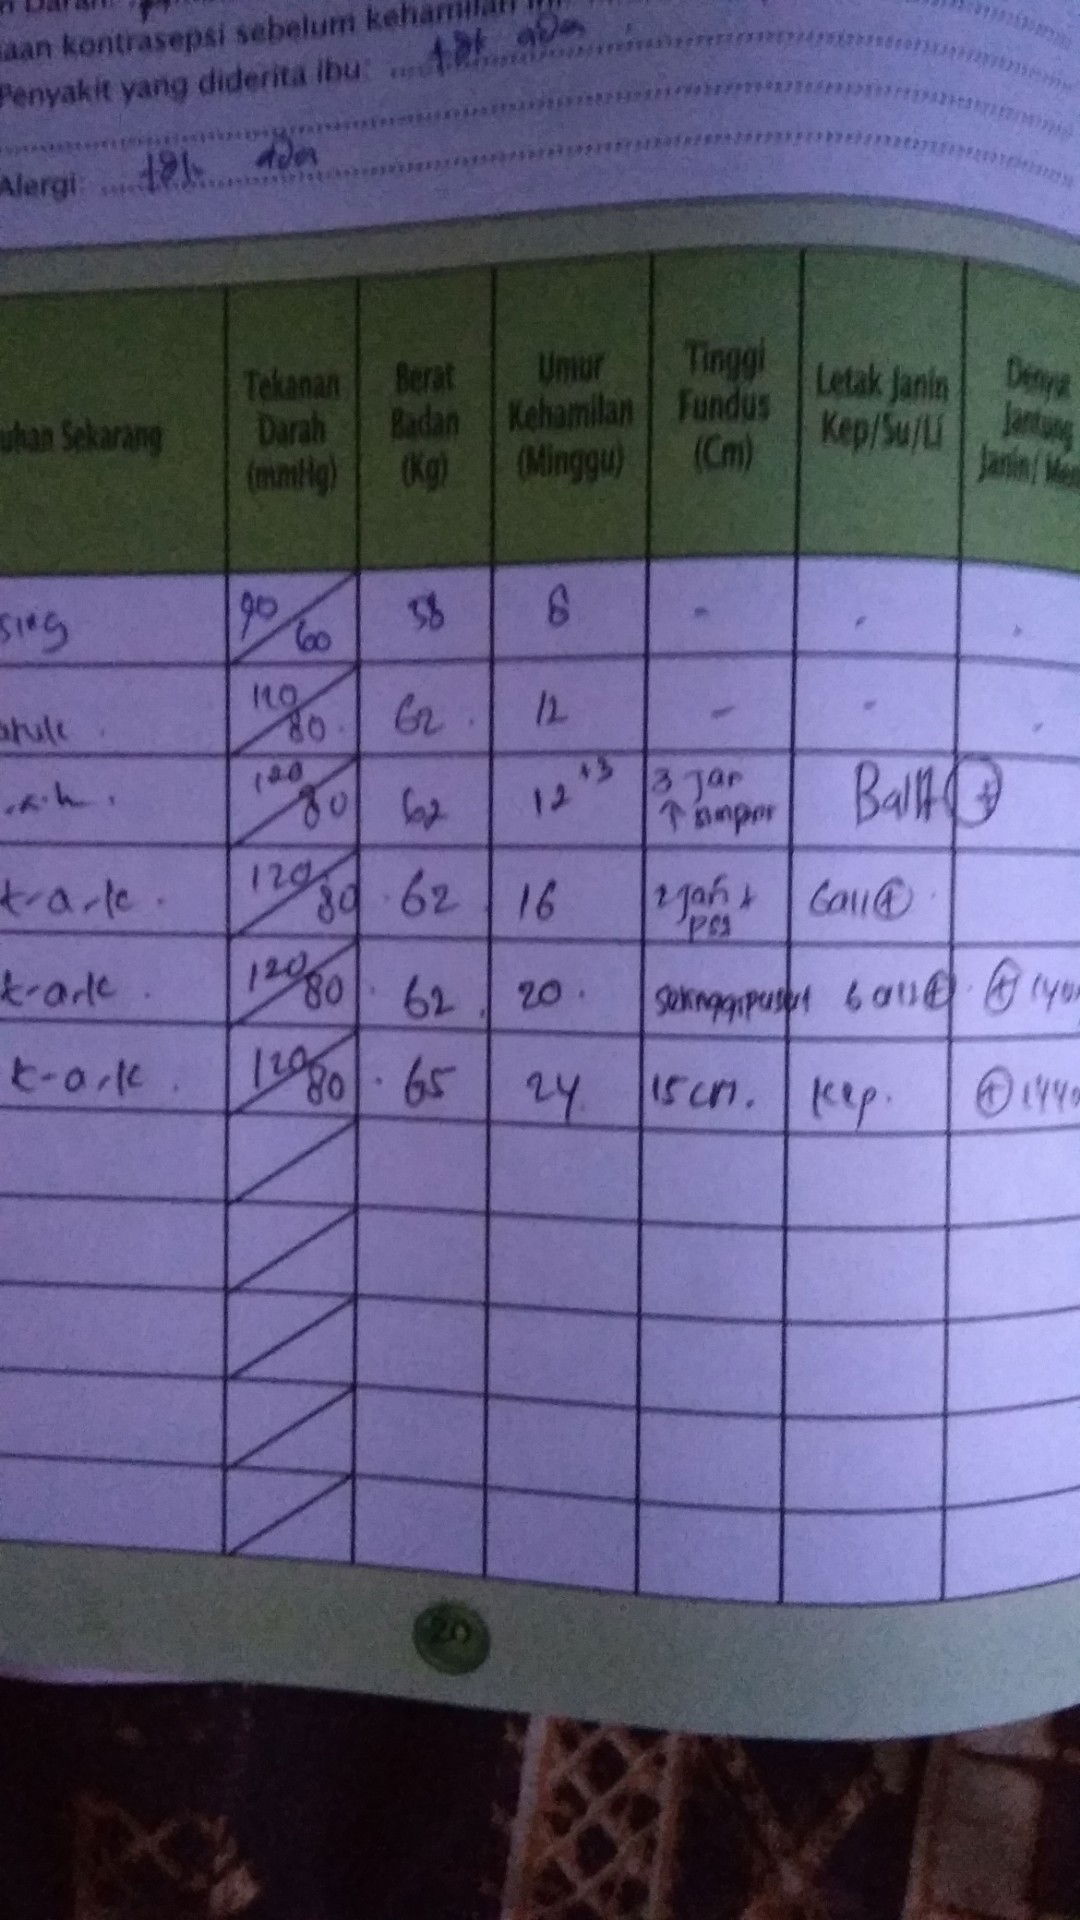 aan kontrasepsi sebelum kehamilan
Penyakit yang diderita ibu: tdk ada
Alergi: tdk ada
uhan Sekarang
Tekanan Darah (mmHg)
Berat Badan (Kg)
Umur Kehamilan (Minggu)
Tinggi Fundus (Cm)
Letak Janin Kep/Su/Li
Denyut Jantung Janin/
sing 90/60 58 8 - - -
110/80 62 12 - - -
120/80 62 12+3 3 jar ↑ simpar Ball +
t-a-k 120/80 62 16 2 jari pst ball +
t-a-k 120/80 62 20 setinggi pusat ball + + 140
t-a-k 120/80 65 24 15 cm. kep. + 144
20